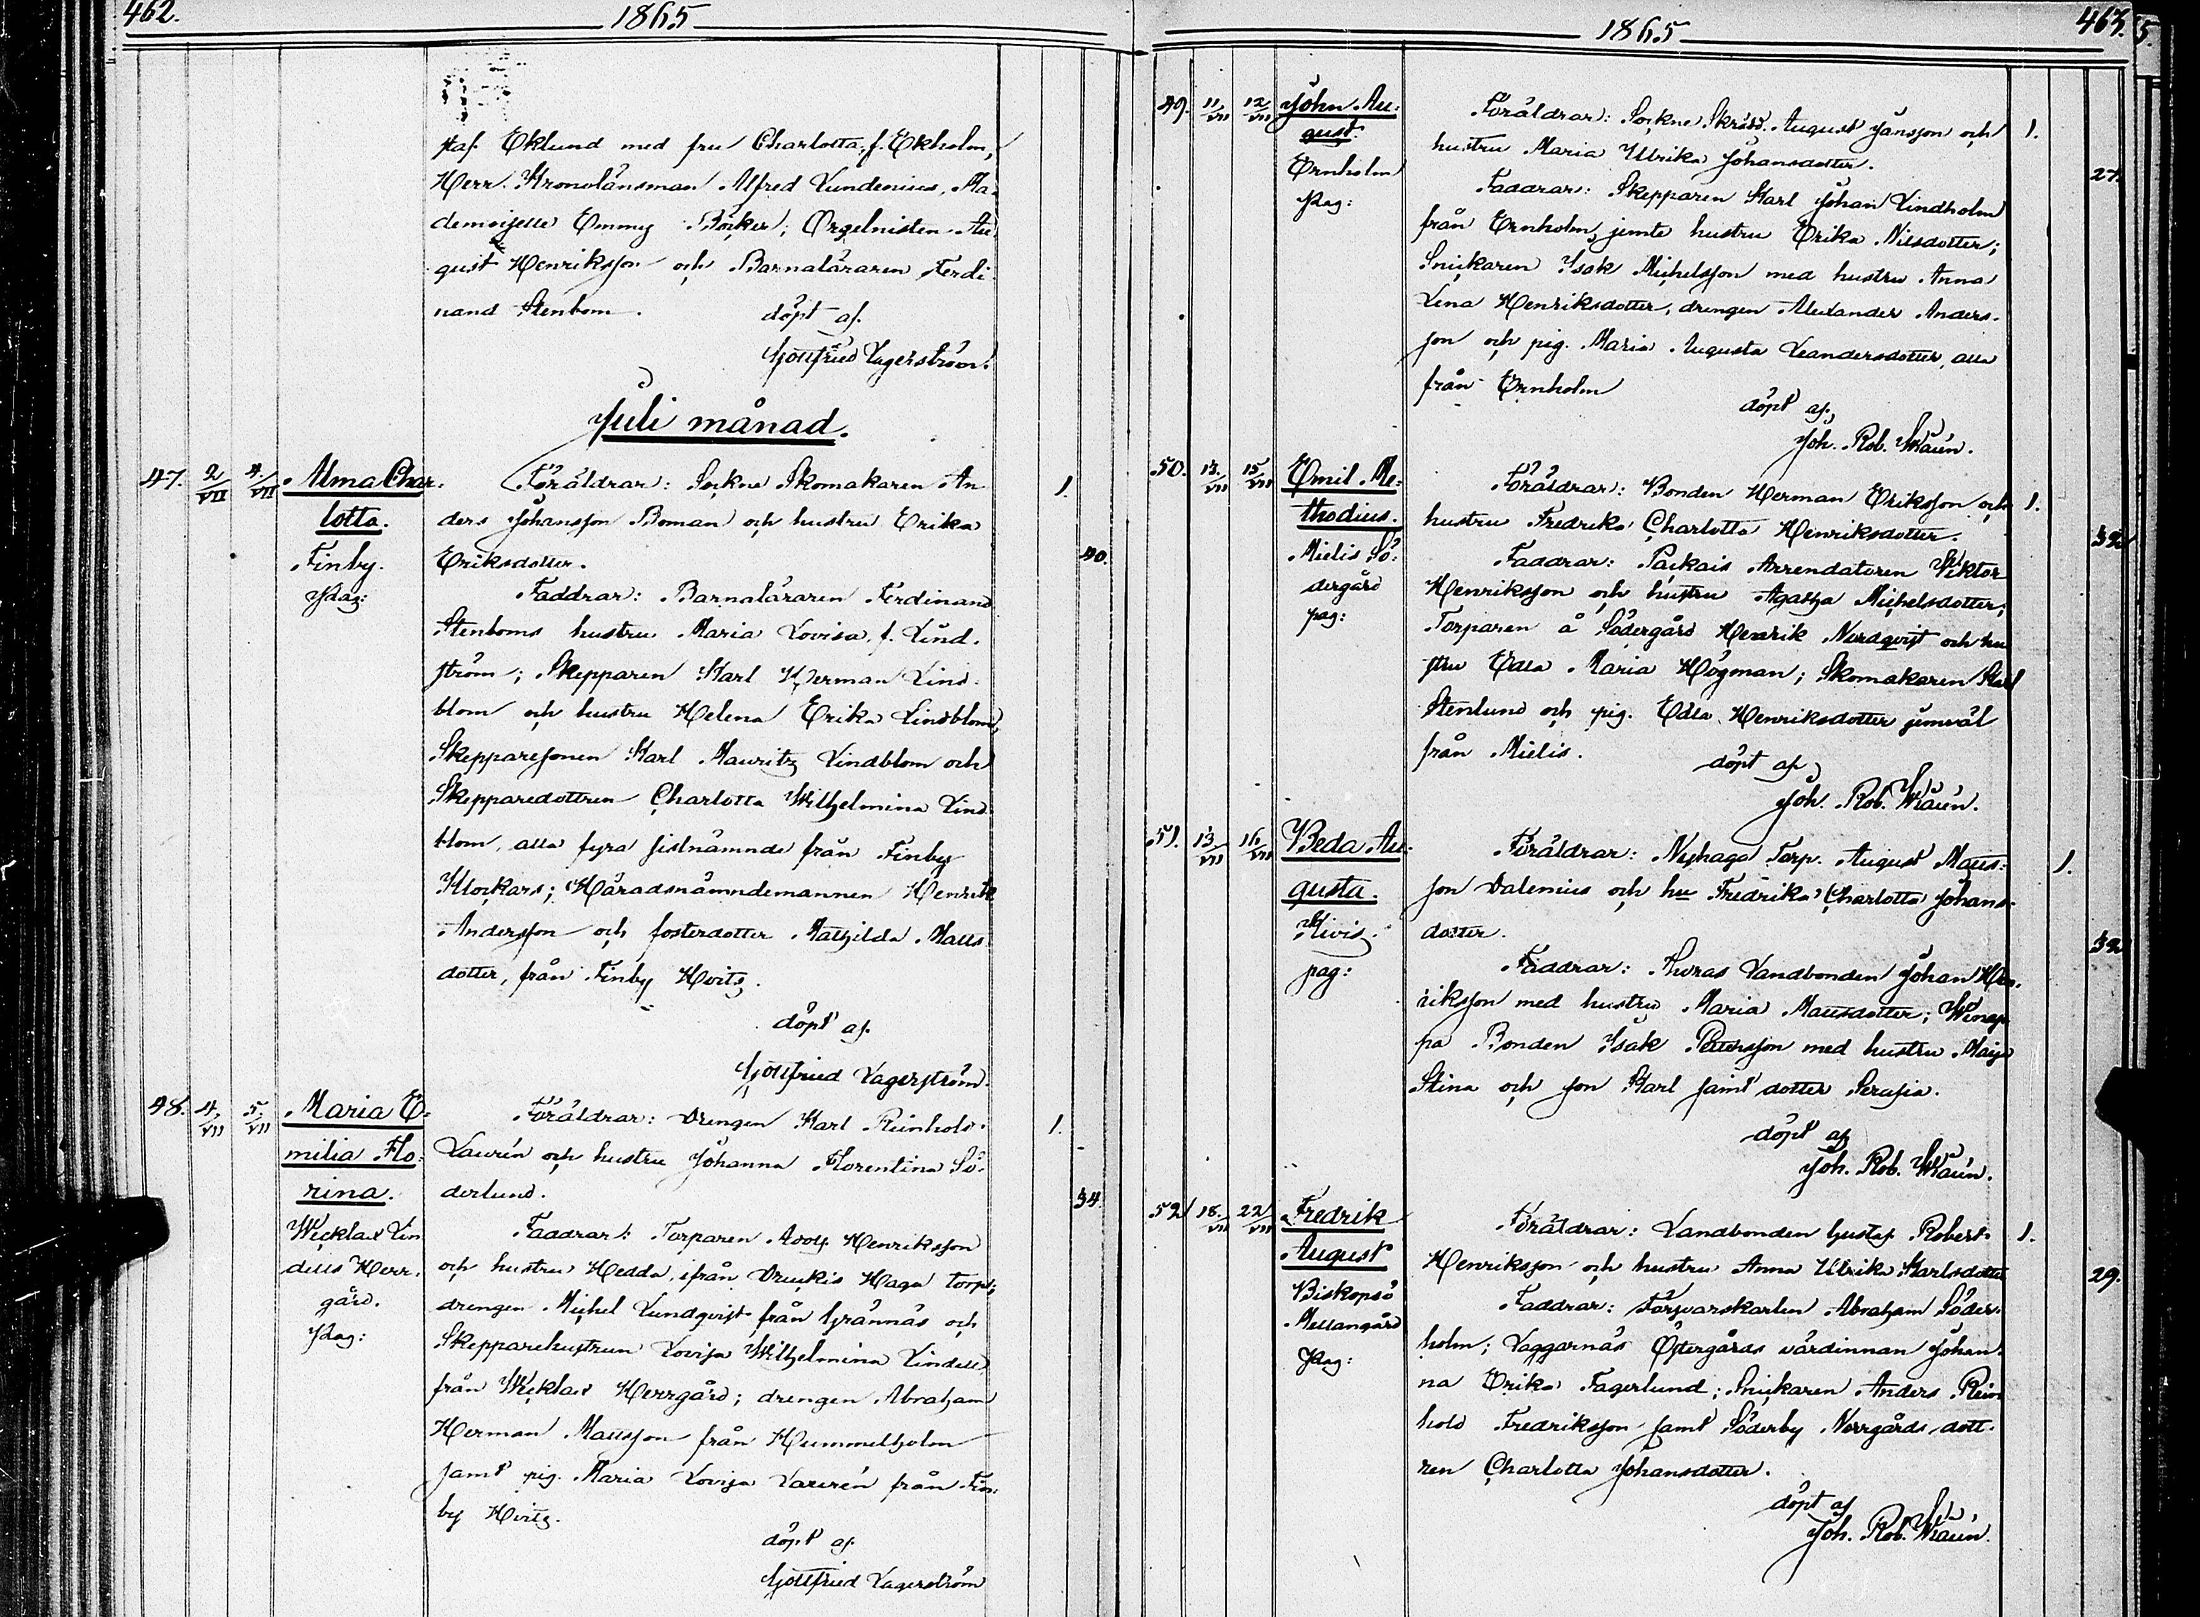 462.
1865
staf Eklund med fru Charlotta, f. Ekholm,
Herr Kronolänsman Alfred Lundenius, Ma-
demoiselle Emmy Böcker; Orgelnisten Au-
gust Henriksson och Barnaläraren Ferdi-
nand Stenbom.
döpt af.
Gottfried Lagerström.
Juli månad.
47. 2/VII 4/VII Alma Char-
lotta.
Finby.
Pag:
Föräldrar: Sockne Skomakaren An-
ders Johansson Boman och hustru Erika
Eriksdotter.
1.
40.
Faddrar: Barnaläraren Ferdinand
Stenboms hustru Maria Lovisa, f. Lind-
ström; Skepparen Karl Herman Lind-
blom och hustru Helena Erika Lindblom,
Skepparesonen Karl Mauritz Lindblom och
Skepparedottren Charlotta Wilhelmina Lind-
blom, alla fyra sistnämnde från Finby
Klockars; Häradsnämndemannen Henrik
Andersson och fosterdotter Mathilda Matts-
dotter, från Finby Hvitz.
döpt af.
Gottfried Lagerström.
48. 4./VII 5./VII Maria E-
milia Flo-
rina.
Wecklax Lin
dells Herr-
gård.
Pag:
Föräldrar: Drengen Karl Reinhold
Laurén och hustru Johanna Florentina Sö-
derlund.
1.
34.
Faddrar: Torparen Adolf Henriksson
och hustru Hedda, ifrån Druckis Haga torp;
drengen Michel Lundqvist från Grännäs och
Skepparehustrun Lovisa Wilhelmina Lindell
från Wecklax Herrgård; drengen Abraham
Herman Mattsson från Hummelholm
samt pig. Maria Lovisa Laurén från Fin-
by Hvitz.
döpt af.
Gottfried Lagerström
1865
463.
5.
49. 11/VII 12/VII John Au-
gust.
Ernholm
Pag:
Föräldrar: Sockne Skrädd. August Jansson och
hustru Maria Ulrika Johansdotter.
1.
27.
Faddrar: Skepparen Karl Johan Lindholm
från Ernholm, jemte hustru Erika Nilsdotter;
Snickaren Isak Michelsson med hustru Anna
Lena Henriksdotter, drengen Alexander Anders-
son och pig. Maria Augusta Leandersdotter, alla
från Ernholm
döpt af,
Joh. Rob. Waén.
50. 13./VII 15/VII Emil Me-
thodius.
Mielis Sö-
dergård
pag:
Föräldrar: Bonden Herman Eriksson och
hustru Fredrika Charlotta Henriksdotter.
1.
Faddrar: Paikais Arrendatoren Wiktor
Henriksson och hustru Agatha Michelsdotter;
Torparen å Södergård Henrik Nordqvist och hu
stru Edla Maria Högman; Skomakaren Karl
Stenlund och pig. Edla Henriksdotter jemväl
från Mielis.
döpt af,
Joh. Rob. Waén.
51. 13/VII 16/VII Beda Au-
gusta.
Kivis.
pag:
Föräldrar: Nyhaga Torp. August Matts-
son Dalenius och hu Fredrika Charlotta Johans-
dotter.
1.
32
Faddrar: Landbonden Johan Hen-
riksson med hustru Maria Mattsdotter;
pa Bonden Isak Pettersson med hustru Maja
Stina och son Karl samt dotter Serafia.
döpt af
Joh. Rob. Waén.
52 18./VII 22/VII Fredrik
August
Biskopsö
Mellangård
Pag:
Föräldrar: Landbonden Gustaf Robert
Henriksson och hustru Anna Ulrika Karlsdotter
1.
29.
Faddrar: Försvarskarlen Abraham Söder-
holm; Laggarnäs Östergårds värdinnan Johan-
na Erika Fagerlund; Snickaren Anders Rein
hold Fredriksson samt Söderby Norrgårds dott-
ren Charlotta Johansdotter.
döpt af
Joh. Rob. Waén.